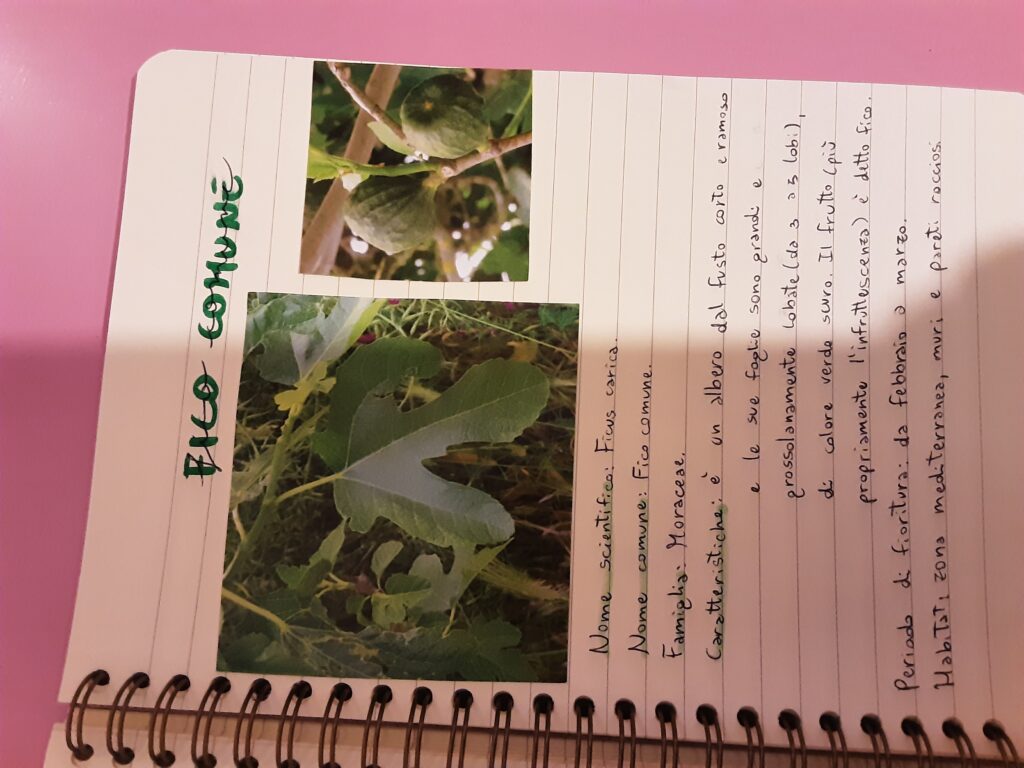 FICO COMUNE
Nome scientifico: Ficus carica.
Nome comune: Fico comune.
Famiglia: Moraceae.
Caratteristiche: è un albero dal fusto corto e ramoso
e le sue foglie sono grandi e
grossolanamente lobate (da 3 a 5 lobi),
di colore verde scuro. Il frutto (più
propriamente l'infruttescenza) è detto fico.
Periodo di fioritura: da febbraio a marzo.
Habitat: zona mediterranea, muri e pareti rocciosi.